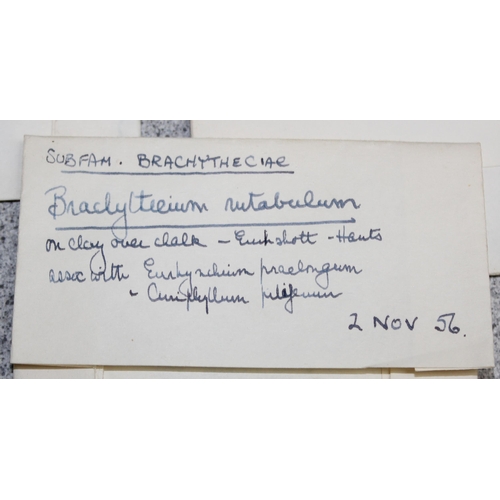 SUBFAM. BRACHYTHECIAE
Brachythecium rutabulum
on clay over chalk - Emshott - Hants
assoc with Eurhynchium praelongum
" Cirriphyllum piliferum
2 NOV 56.